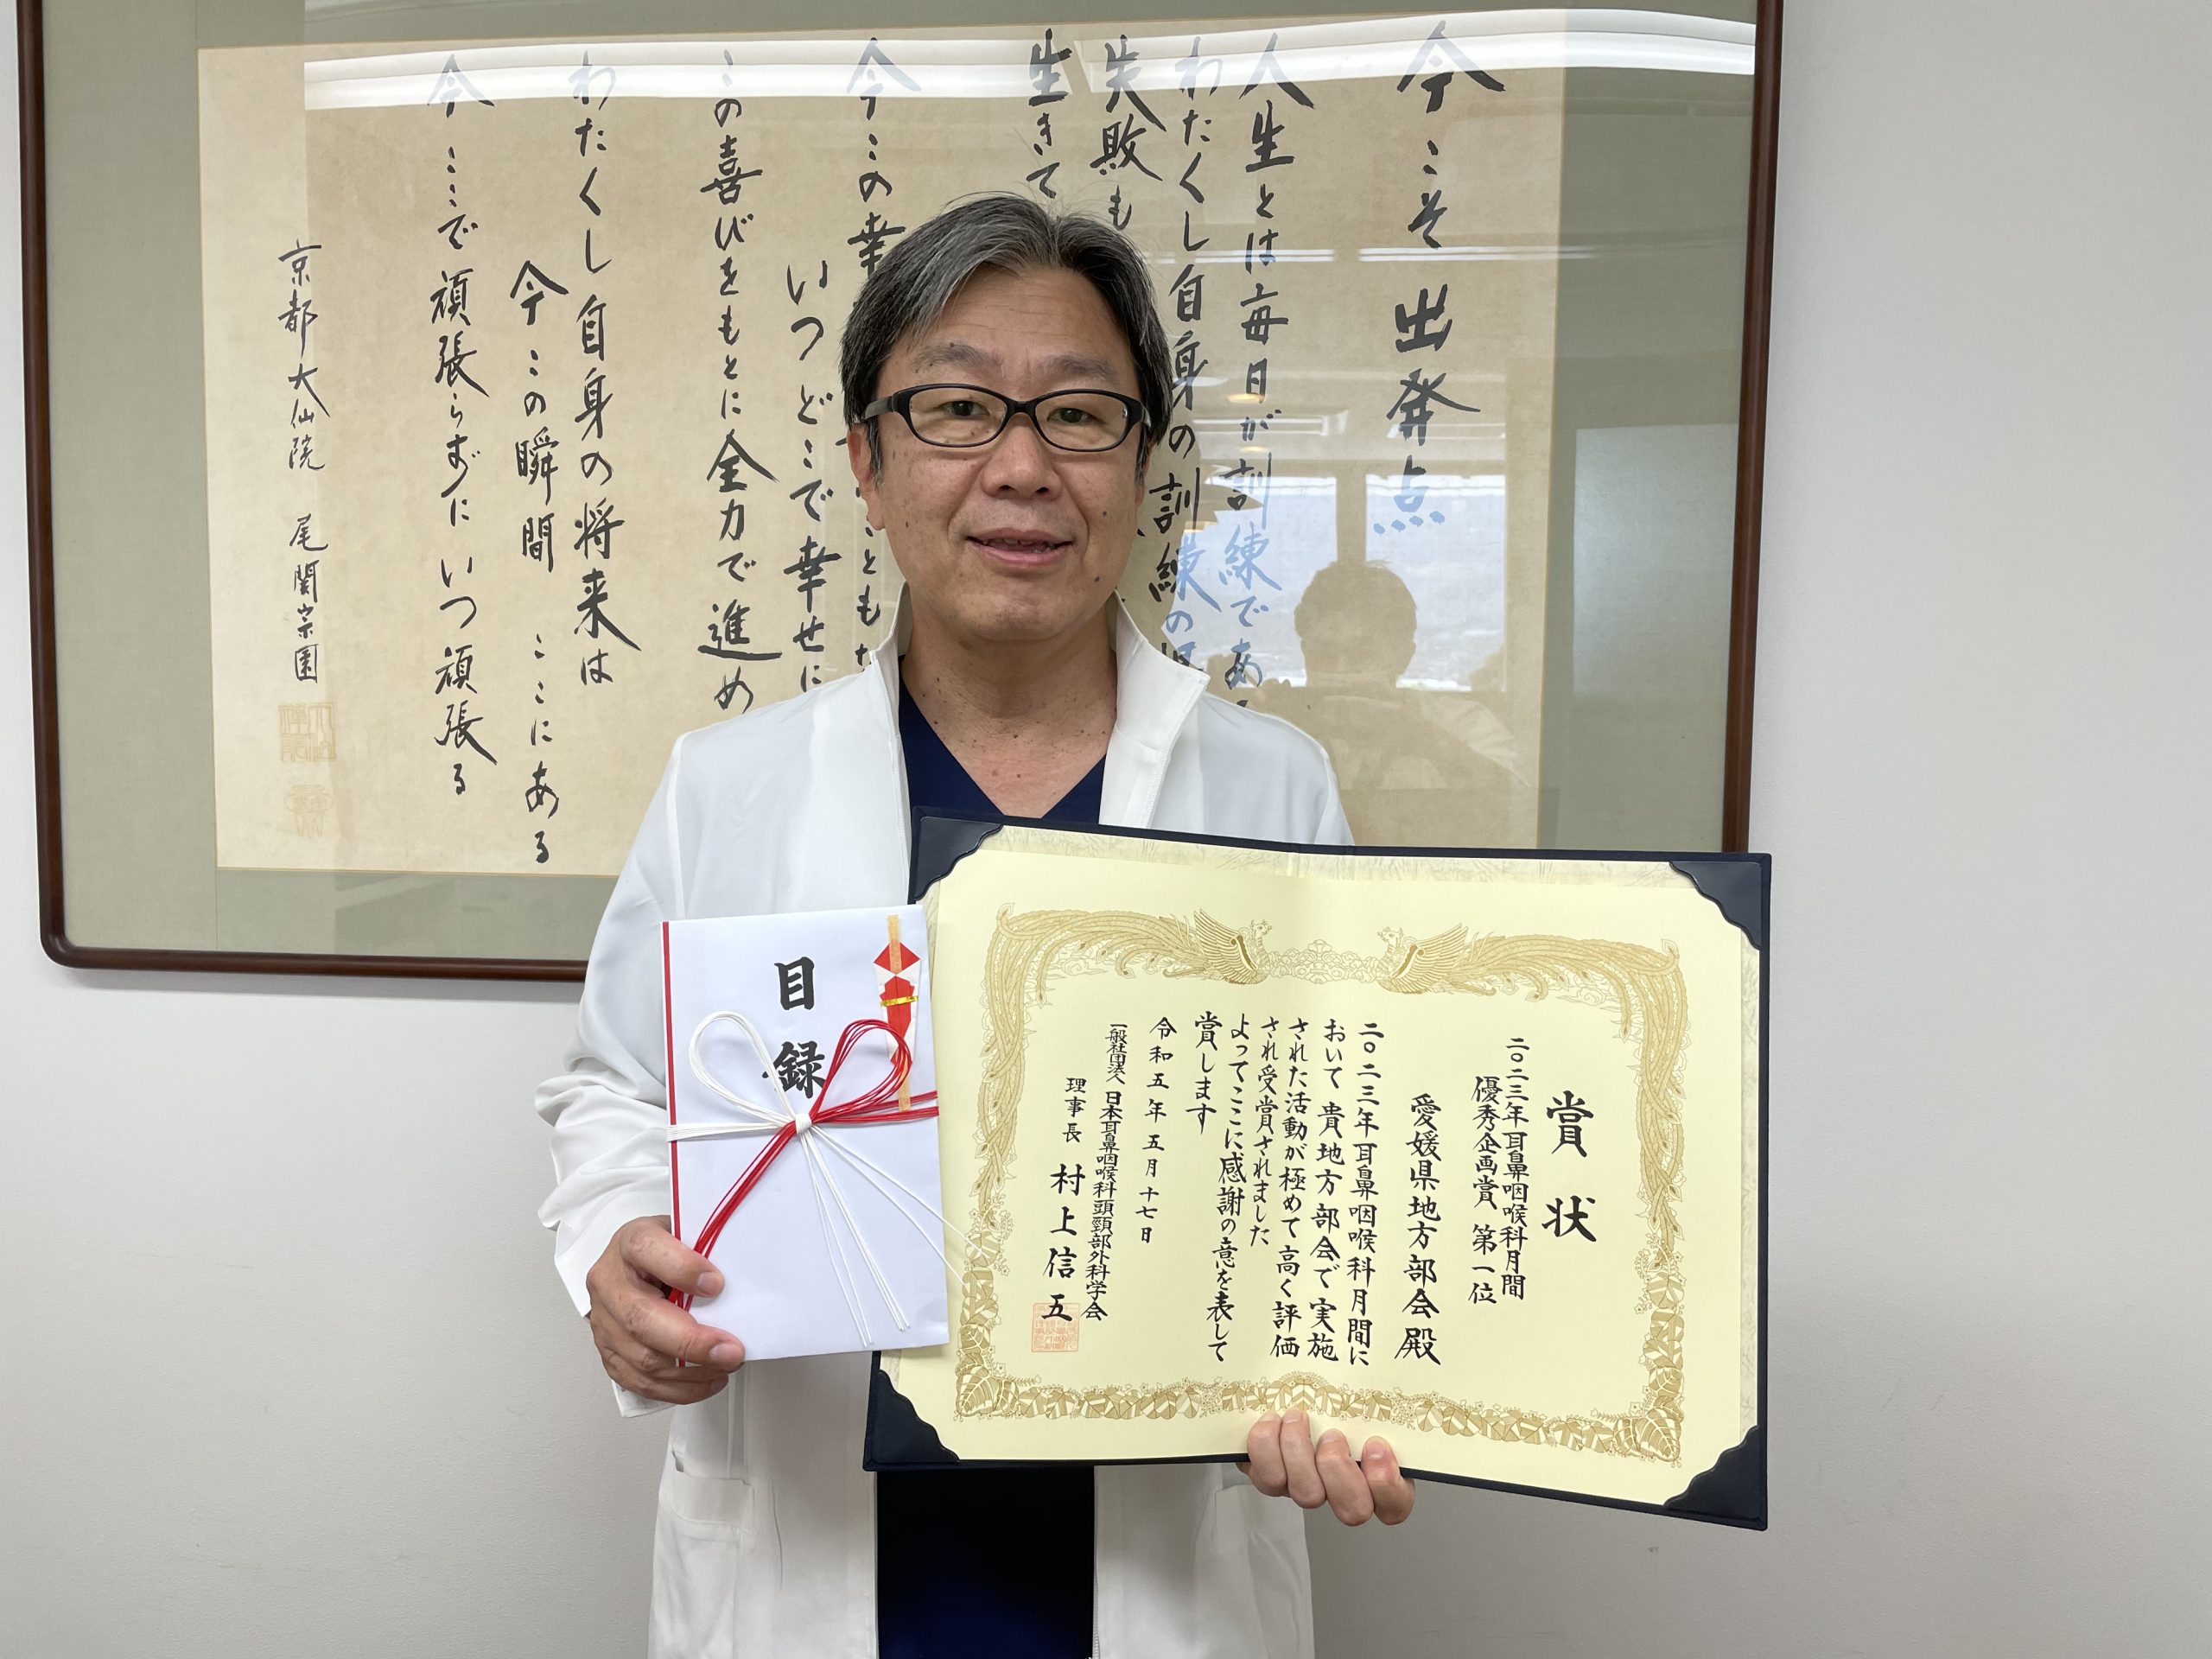 今こそ出発点
人生とは毎日が訓練であ
わたくし自身の訓練の
失敗も
生きて
今この幸
いつどこで幸せに
この喜びをもとに全力で進め
わたくし自身の将来は
今この瞬間 ここにある
今ここで頑張らずにいつ頑張る
京都大仙院 尾関宗園
目録
賞状
二〇二三年耳鼻咽喉科月間
優秀企画賞 第一位
愛媛県地方部会殿
二〇二三年耳鼻咽喉科月間に
おいて貴地方部会で実施
された活動が極めて高く評価
され受賞されました
よってここに感謝の意を表して
賞します
令和五年五月十七日
一般社団法人 日本耳鼻咽喉科頭頸部外科学会
理事長 村上信五